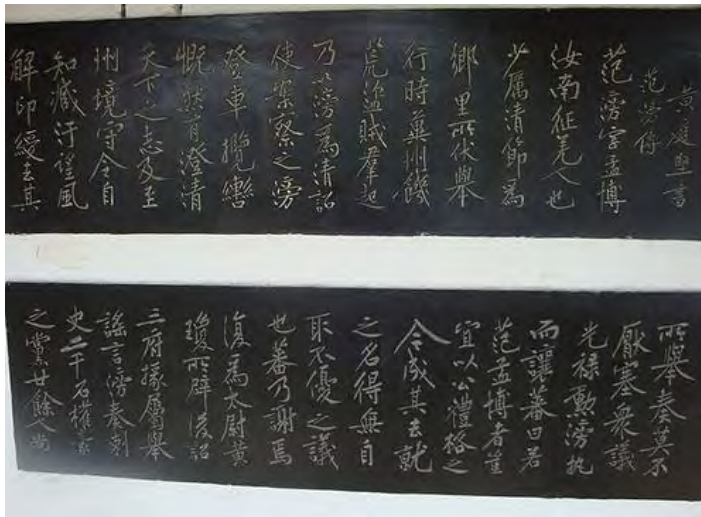 黄庭堅書
范滂傳
范滂字孟博
汝南征羌人也
少厲清節為
鄉里所伏舉
行時冀州饑
荒盜賊羣起
乃以滂為清詔
使案察之滂
登車攬轡
慨然有澄清
天下之志及至
州境守令自
知臧汙望風
解印綬去其
所舉奏莫不
厭塞衆議
光禄勲滂執
而讓蕃曰若
范孟博者豈
宜以公禮格之
今成其去就
之名得無自
取不優之議
也蕃乃謝焉
復為太尉黄
瓊所辟後詔
三府掾屬舉
謠言滂奏刺
史二千石權豪
之黨廿餘人尚